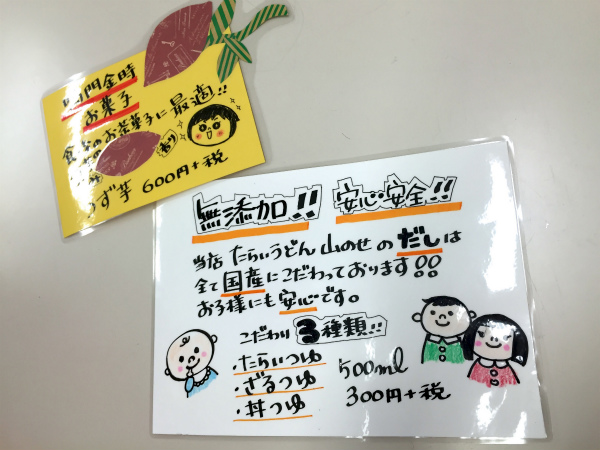 鳴門金時
お菓子
食後のお茶菓子に最適!!
うず芋 600円+税
無添加!! 安心安全!!
当店 たらいうどん 山のせの だしは
全て国産にこだわっております!!
お子様にも安心です。
こだわり 3種類!!
・たらいつゆ
・ざるつゆ
・丼つゆ
500ml
300円+税